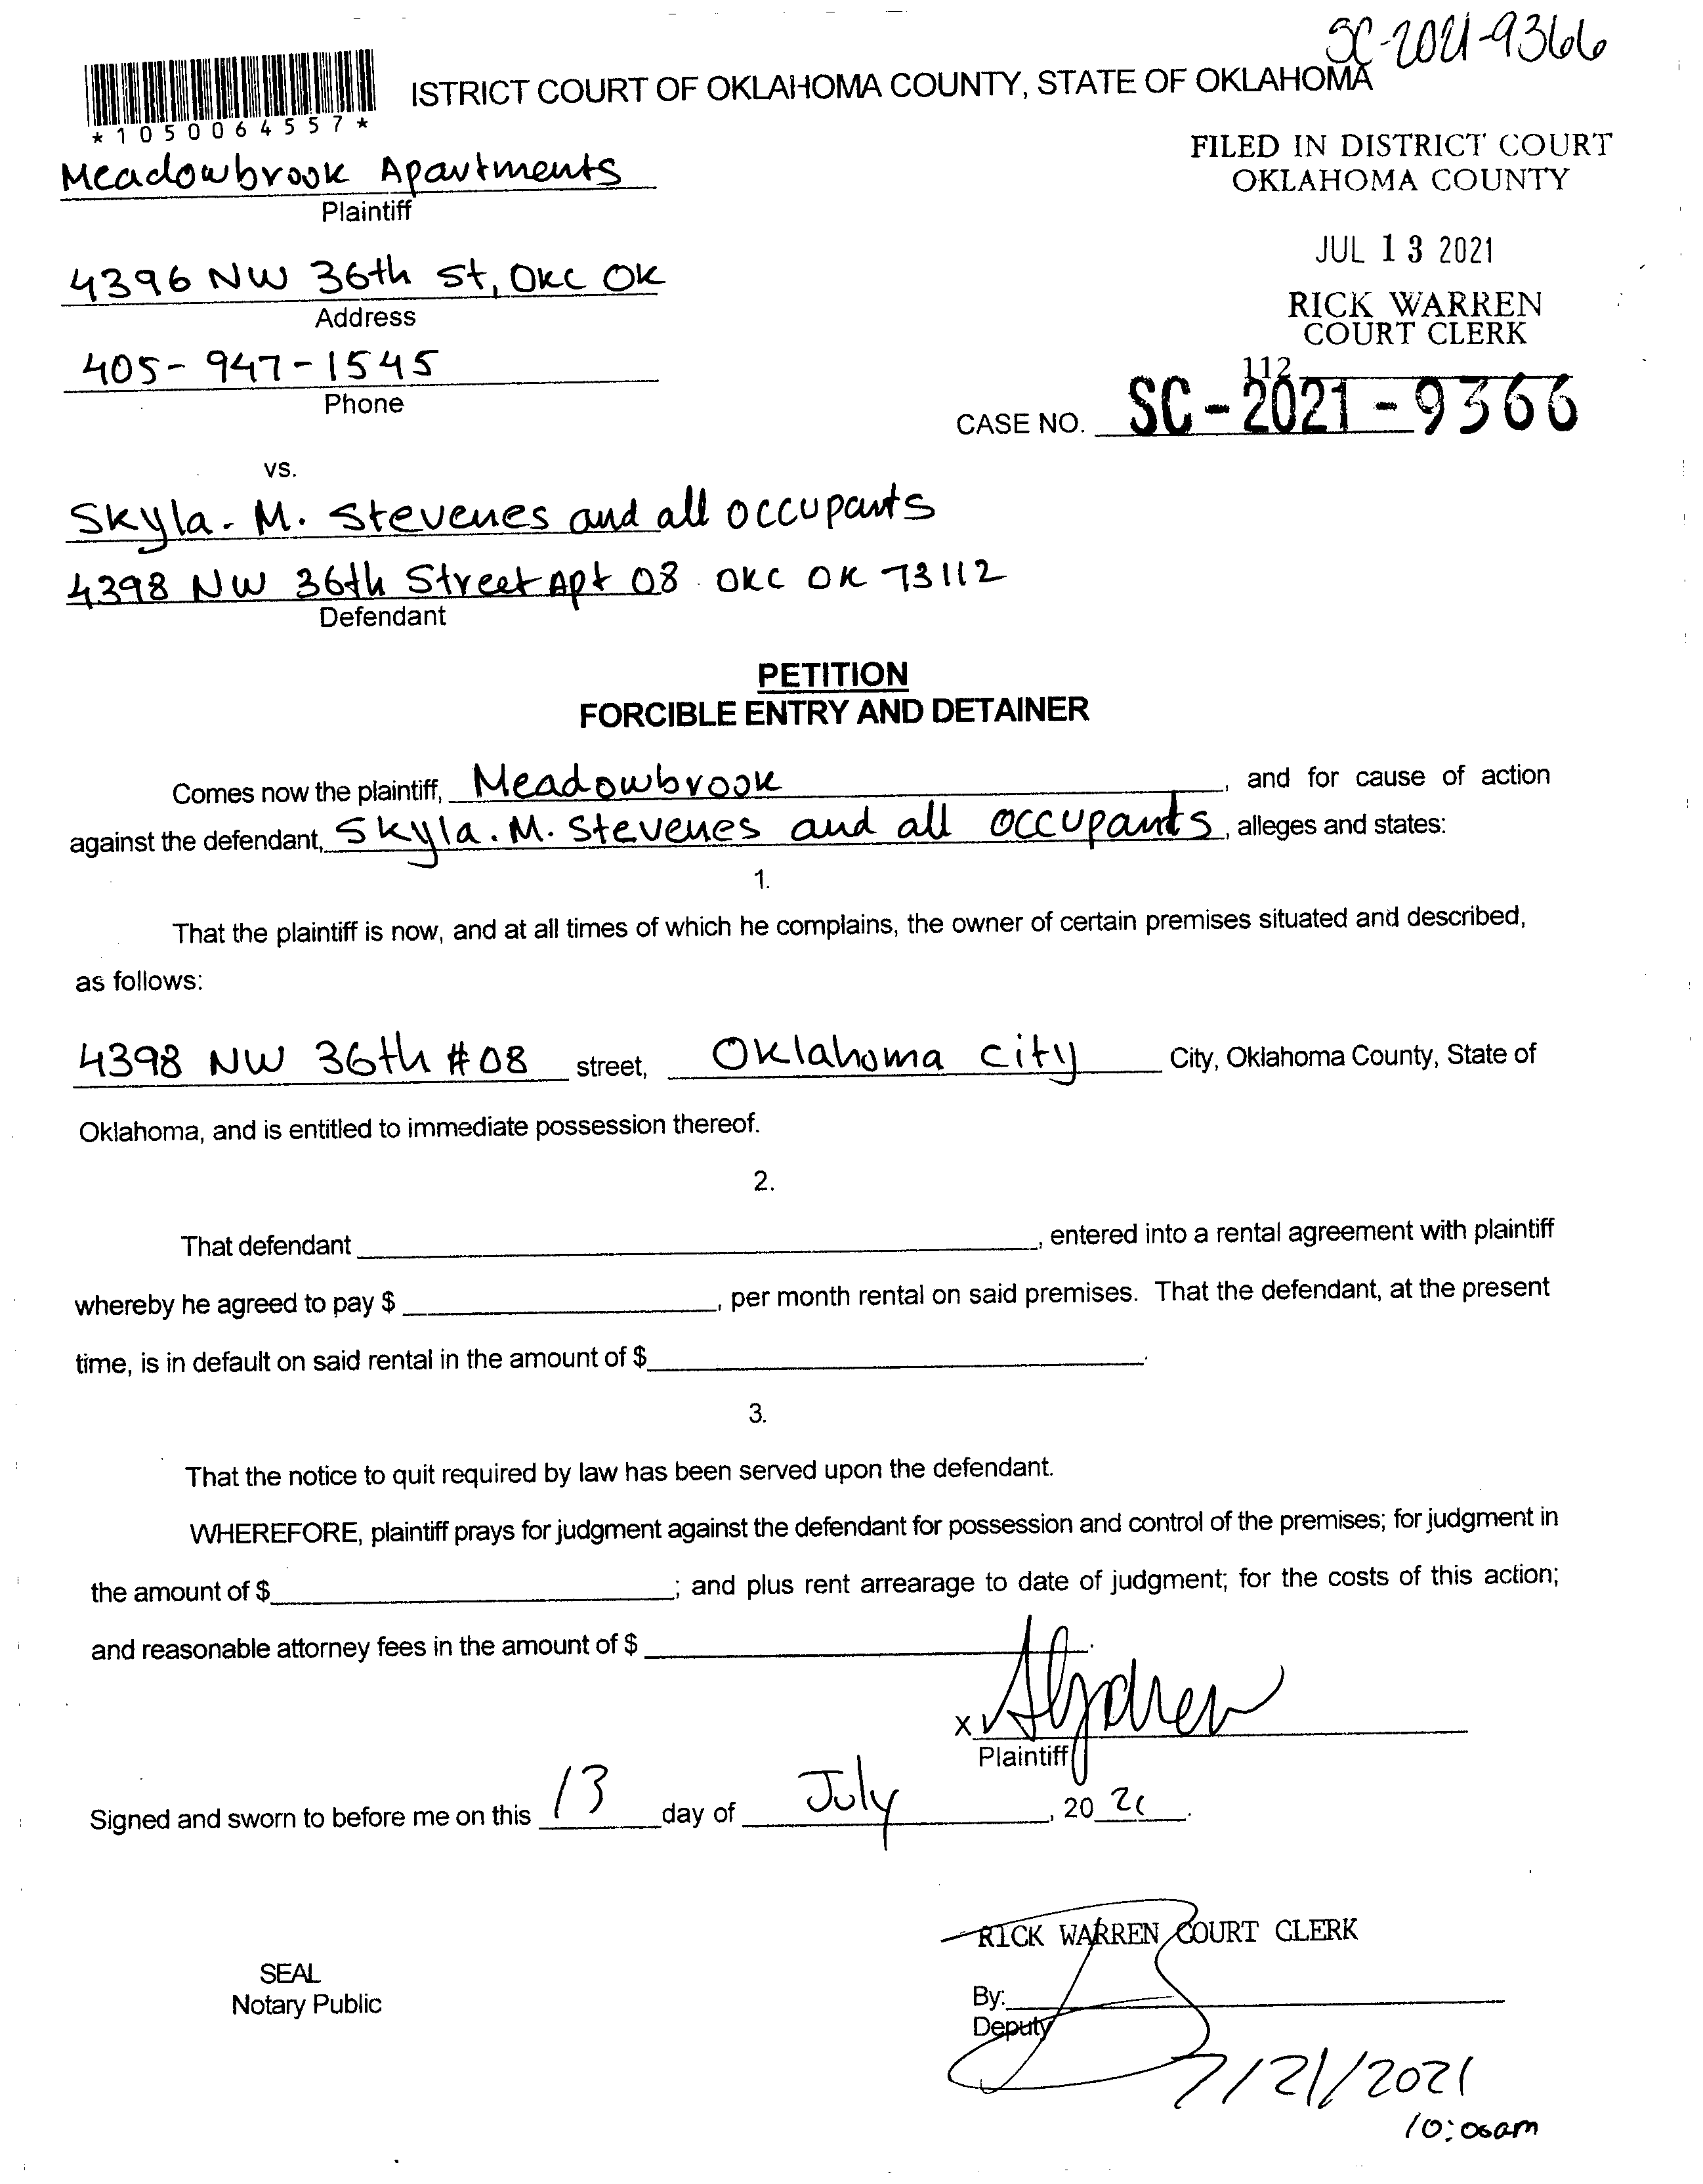 SC-2021-9366
ISTRICT COURT OF OKLAHOMA COUNTY, STATE OF OKLAHOMA
*1050064557*
FILED IN DISTRICT COURT
OKLAHOMA COUNTY
Meadowbrook Apartments
Plaintiff
JUL 13 2021
4396 NW 36th St, OKC OK
Address
RICK WARREN
COURT CLERK
405-947-1545
Phone
112
CASE NO. SC-2021-9366
vs.
Skyla. M. Stevenes and all occupants
4398 NW 36th Street Apt 08 OKC OK 73112
Defendant
PETITION
FORCIBLE ENTRY AND DETAINER
Comes now the plaintiff, Meadowbrook, and for cause of action
against the defendant, Skyla. M. Stevenes and all occupants, alleges and states:
1.
That the plaintiff is now, and at all times of which he complains, the owner of certain premises situated and described,
as follows:
4398 NW 36th #08 street, Oklahoma city City, Oklahoma County, State of
Oklahoma, and is entitled to immediate possession thereof.
2.
That defendant ___, entered into a rental agreement with plaintiff
whereby he agreed to pay $ ___, per month rental on said premises. That the defendant, at the present
time, is in default on said rental in the amount of $___.
3.
That the notice to quit required by law has been served upon the defendant.
WHEREFORE, plaintiff prays for judgment against the defendant for possession and control of the premises; for judgment in
the amount of $___; and plus rent arrearage to date of judgment; for the costs of this action;
and reasonable attorney fees in the amount of $ ___.
X
Plaintiff
Signed and sworn to before me on this 13 day of July, 2021.
RICK WARREN COURT CLERK
SEAL
Notary Public
By:
Deputy
7/21/2021
10:00am